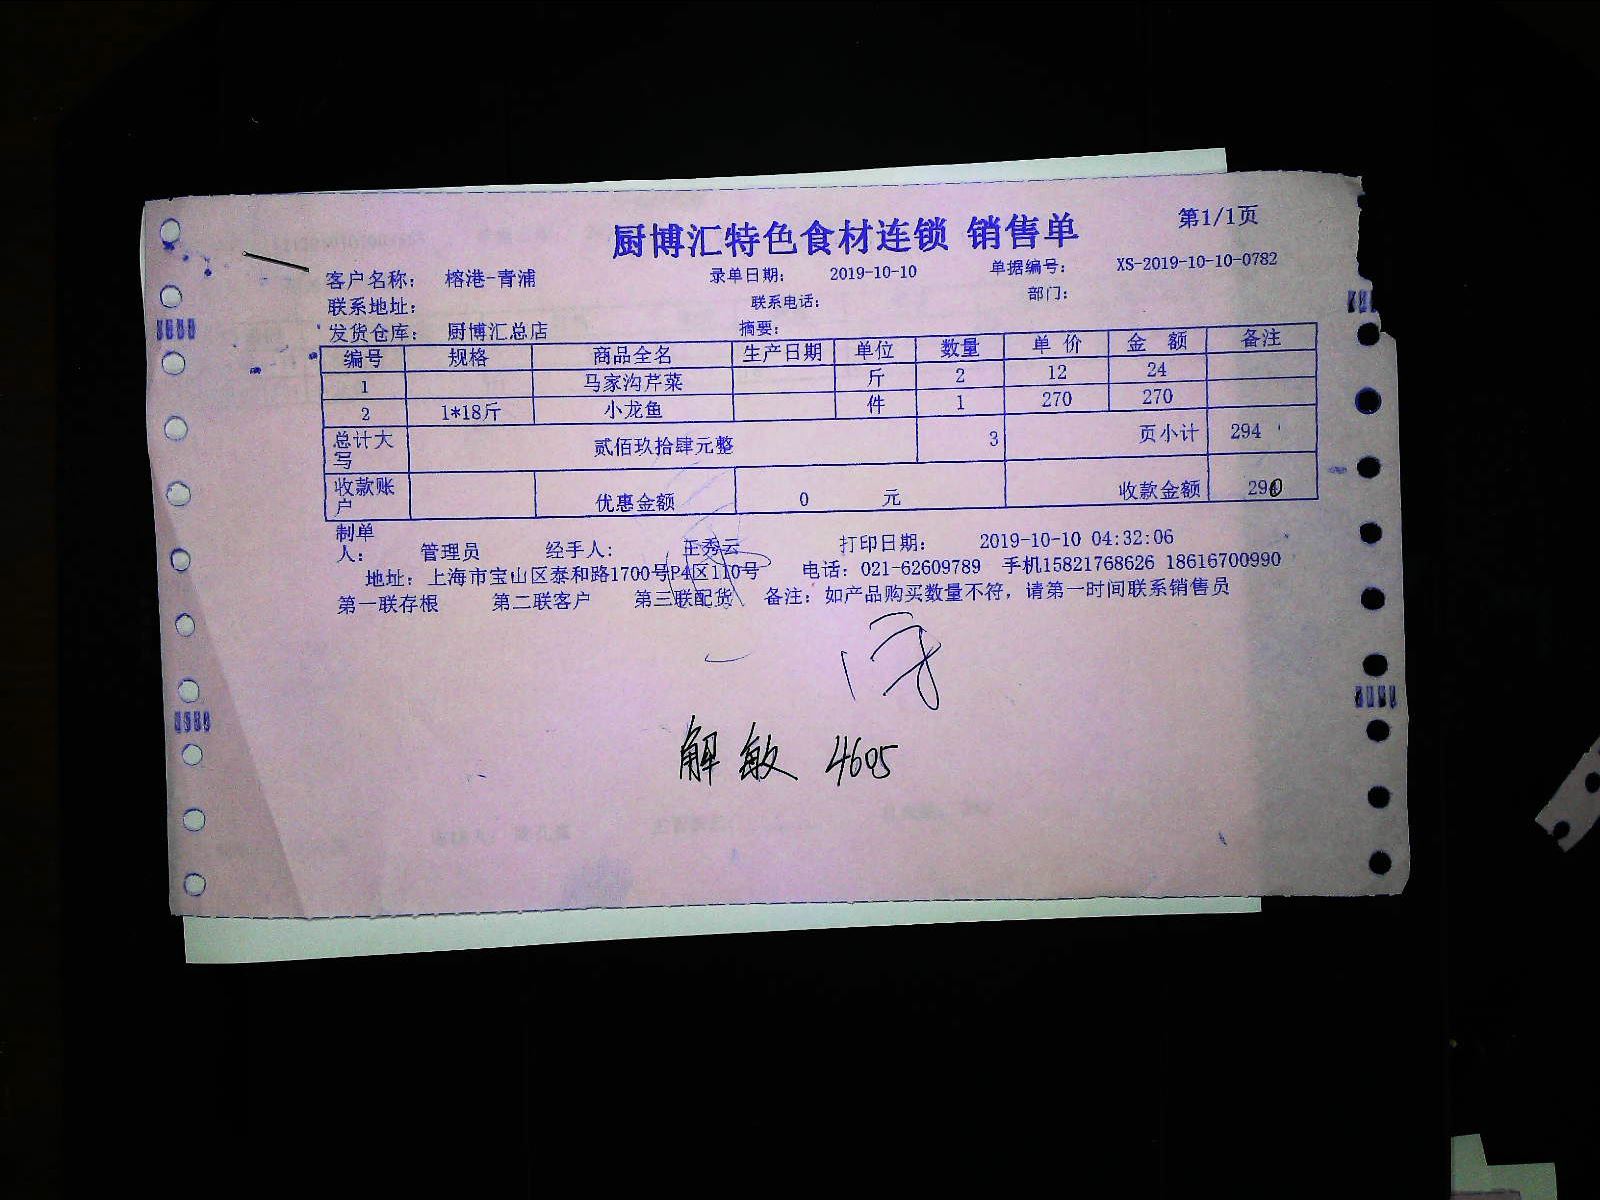 厨博汇特色食材连锁 销售单 第1/1页
客户名称： 榕港-青浦 录单日期： 2019-10-10 单据编号： XS-2019-10-10-0782
联系地址： 联系电话： 部门：
发货仓库： 厨博汇总店 摘要：
编号 规格 商品全名 生产日期 单位 数量 单 价 金 额 备注
1 马家沟芹菜 斤 2 12 24
2 1*18斤 小龙鱼 件 1 270 270
总计大写 贰佰玖拾肆元整 3 页小计 294
收款账户 优惠金额 0 元 收款金额 290
制单人： 管理员 经手人： 王秀云 打印日期： 2019-10-10 04:32:06
地址：上海市宝山区泰和路1700号P4区110号 电话：021-62609789 手机15821768626 18616700990
第一联存根 第二联客户 第三联配货 备注：如产品购买数量不符，请第一时间联系销售员
解敏 4605